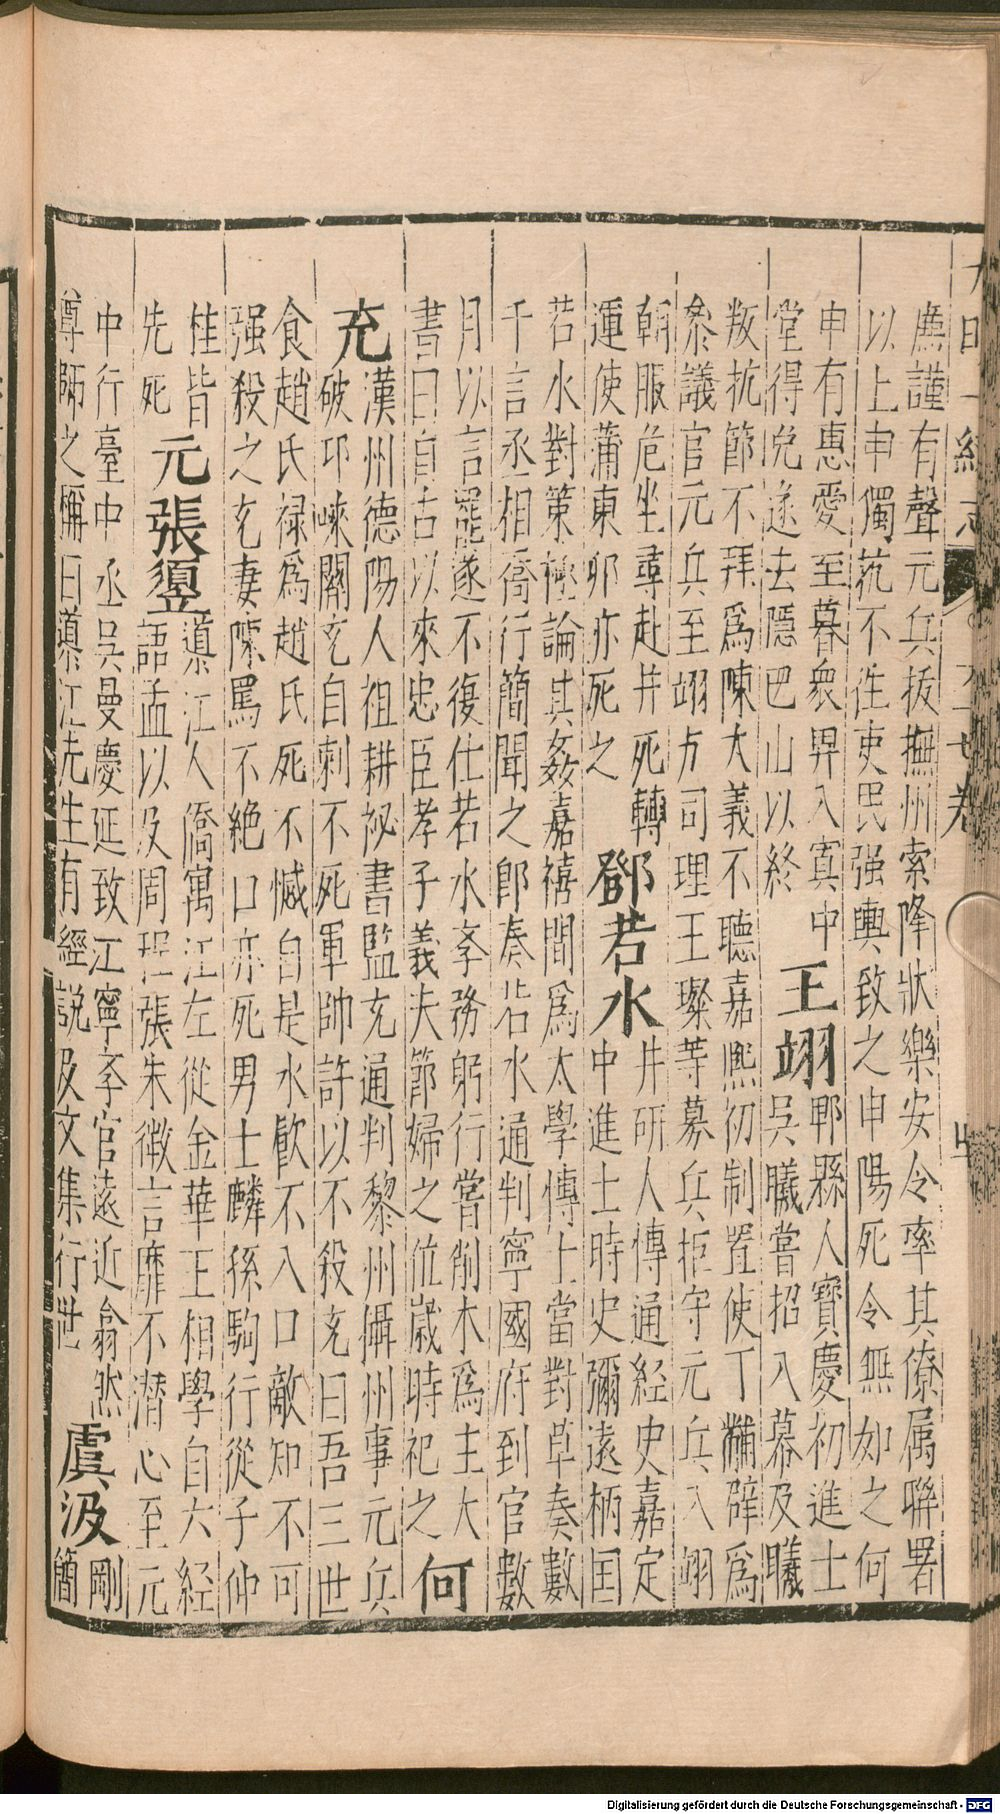 大明一統志
廉謹有聲元兵拔撫州索降狀樂安令率其僚属聯署
以上申獨抗不徃吏民强輿致之申陽死令無如之何
申有惠愛至暮衆舁入寘中
堂得免遂去隱巴山以終
王翊
郫縣人寶慶初進士
吳曦嘗招入幕及曦
叛抗節不拜爲陳大義不聽嘉熈初制置使丁黼辟爲
叅議官元兵至翊方司理王璨等募兵拒守元兵入翊
朝服危坐尋赴井死轉
運使蒲東卯亦死之
鄧若水
井研人愽通經史嘉定
中進士時史彌遠柄国
若水對策極論其姦嘉禧間爲太學愽士當對草奏數
千言丞相喬行簡聞之卽奏若水通判寧國府到官數
月以言罷遂不復仕若水斈務躬行嘗削木爲主大
書曰自古以來忠臣孝子義夫節婦之位歲時祀之
何
充
漢州德陽人祖耕祕書監充通判黎州攝州事元兵
破邛崍關充自刺不死軍帥許以不殺充曰吾三世
食趙氏禄爲趙氏死不憾自是水飲不入口敵知不可
强殺之充妻陳罵不絶口亦死男士麟孫駒行從子仲
桂皆
先死
元張𩓣
導江人僑寓江左從金華王相學自六經
語孟以及周程張朱微言靡不潜心至元
中行臺中丞吳曼慶延致江寧斈官遠近翕然
尊師之稱曰導江先生有經説及文集行世
虞汲
剛
簡
Digitalisierung gefördert durch die Deutsche Forschungsgemeinschaft - DFG